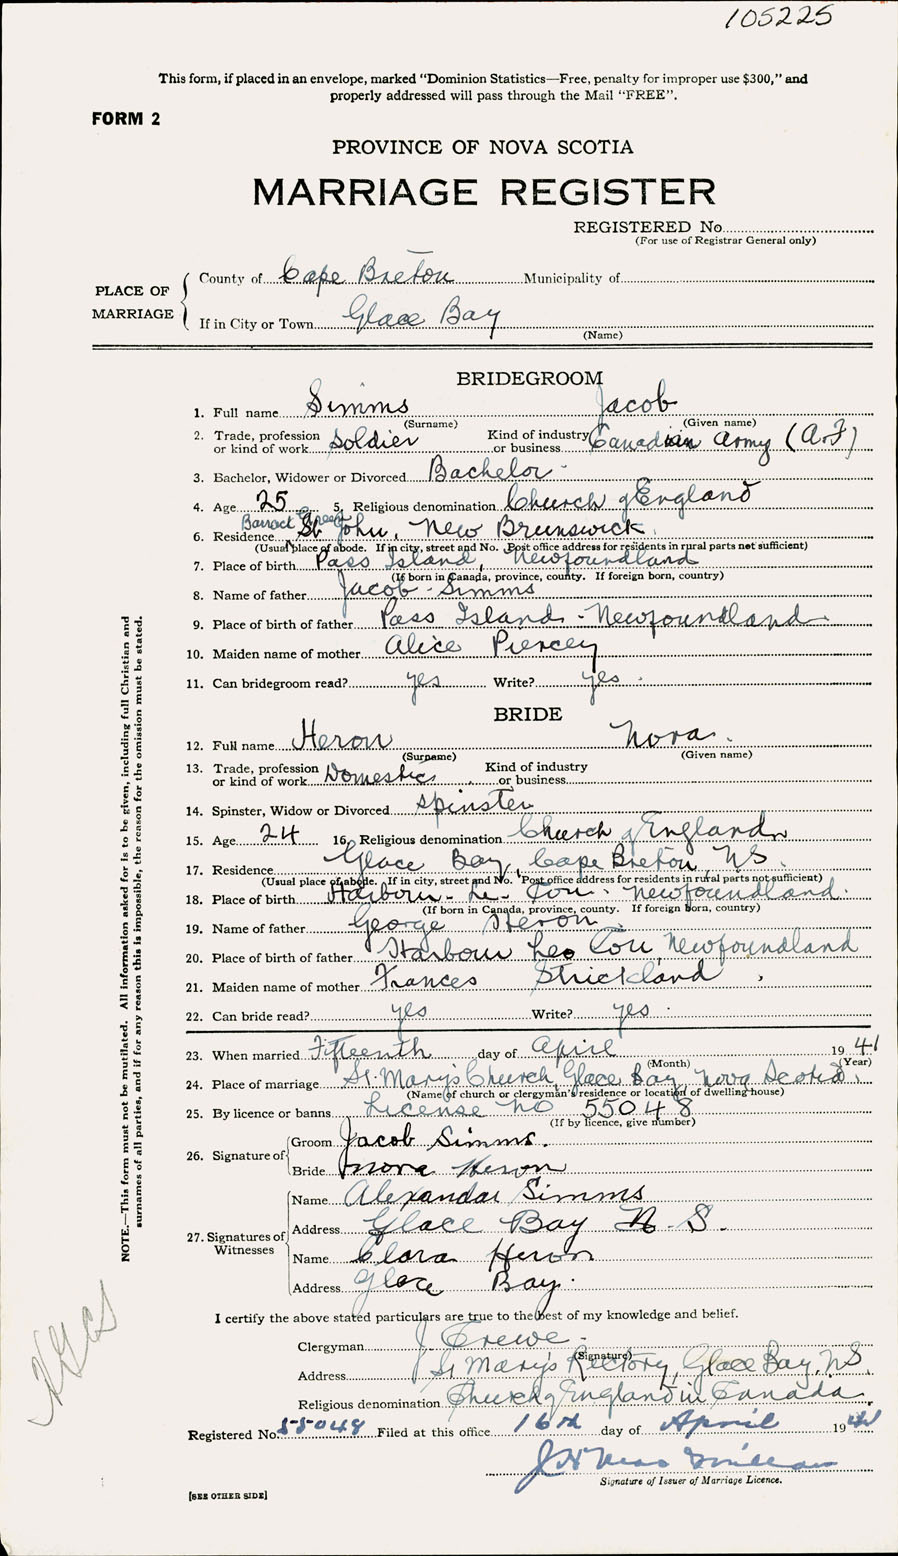 105225
This form, if placed in an envelope, marked "Dominion Statistics—Free, penalty for improper use $300," and
properly addressed will pass through the Mail "FREE".
FORM 2
PROVINCE OF NOVA SCOTIA
MARRIAGE REGISTER
REGISTERED No.
(For use of Registrar General only)
PLACE OF MARRIAGE
County of Cape Breton Municipality of
If in City or Town Glace Bay
(Name)
BRIDEGROOM
1. Full name Simms Jacob
(Surname) (Given name)
2. Trade, profession or kind of work Soldier Kind of industry or business Canadian Army (A.F)
3. Bachelor, Widower or Divorced Bachelor
4. Age 25 5. Religious denomination Church of England
Barrack Green
6. Residence St John, New Brunswick
(Usual place of abode. If in city, street and No. Post office address for residents in rural parts not sufficient)
7. Place of birth Pass Island, Newfoundland
(If born in Canada, province, county. If foreign born, country)
8. Name of father Jacob Simms
9. Place of birth of father Pass Island - Newfoundland
10. Maiden name of mother Alice Piercey
11. Can bridegroom read? yes Write? yes
BRIDE
12. Full name Heron Nora
(Surname) (Given name)
13. Trade, profession or kind of work Domestic Kind of industry or business
14. Spinster, Widow or Divorced spinster
15. Age 24 16. Religious denomination Church of England
17. Residence Glace Bay, Cape Breton, NS.
(Usual place of abode. If in city, street and No. Post office address for residents in rural parts not sufficient)
18. Place of birth Harbour Le Cou. Newfoundland.
(If born in Canada, province, county. If foreign born, country)
19. Name of father George Heron
20. Place of birth of father Harbour Leo Cou Newfoundland
21. Maiden name of mother Frances Strickland
22. Can bride read? yes Write? yes
23. When married Fifteenth day of April 1941
(Month) (Year)
24. Place of marriage St. Mary's Church, Glace Bay, Nova Scotia.
(Name of church or clergyman's residence or location of dwelling house)
25. By licence or banns License No 55048
(If by licence, give number)
26. Signature of Groom Jacob Simms.
Bride Nora Heron
27. Signatures of Witnesses
Name Alexandar Simms
Address Glace Bay N. S.
Name Clara Heron
Address Glace Bay.
I certify the above stated particulars are true to the best of my knowledge and belief.
Clergyman J Crewe
(Signature)
Address St Mary's Rectory, Glace Bay, NS.
Religious denomination Church of England in Canada.
Registered No. 55048 Filed at this office 16th day of April 1941
Signature of Issuer of Marriage Licence.
[SEE OTHER SIDE]
NOTE.—This form must not be mutilated. All information asked for is to be given, including full Christian and
surnames of all parties, and if for any reason this is impossible, the reason for the omission must be stated.